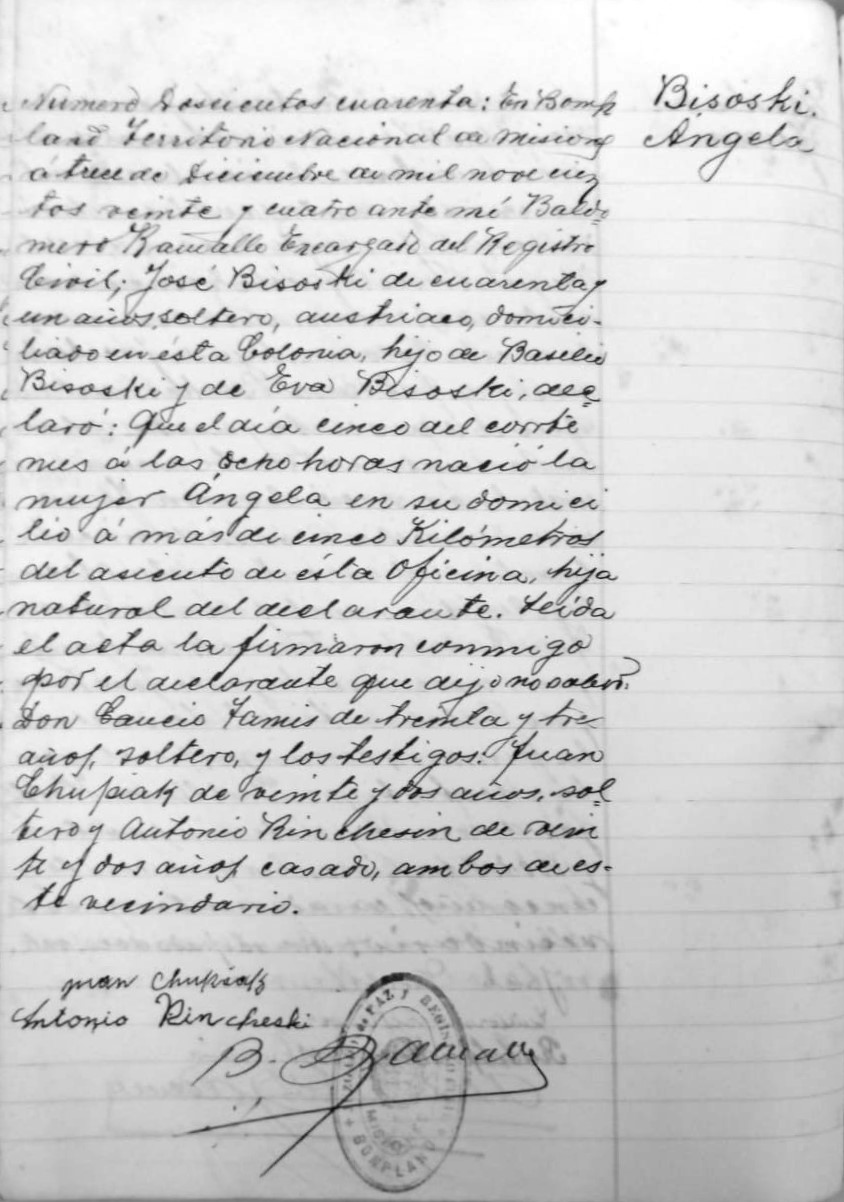 Bisoski.
Ángela
Numero Doscientos cuarenta: En Bomp
land Territorio Nacional de Misiones
á trece de Diciembre de mil novecien
tos veinte y cuatro ante mé Baldo=
mero Ramallo Encargado del Registro
Civil; José Bisoski de cuarenta y
un años, soltero, austriaco, domici-
liado en ésta Colonia, hijo de Basilio
Bisoski y de Eva Bisoski, dec=
laró: Que el día cinco del corrte
mes á las ocho horas nació la
mujer Ángela en su domici
lio á más de cinco Kilómetros
del asiento de ésta Oficina, hija
natural del declarante. Leida
el acta la firmaron conmigo
por el declarante que dijo no saber.
Don Tamis de treinta y tres
años, soltero, y los testigos: Juan
Chupiak de veinte y dos años, sol=
tero y Antonio Rinchesin de vein
te y dos años casado, ambos de es-
te vecindario.
Juan Chupiak
Antonio Rincheski
B. Ramallo
PAZ Y REGIS
MISIONES
BOMPLAND